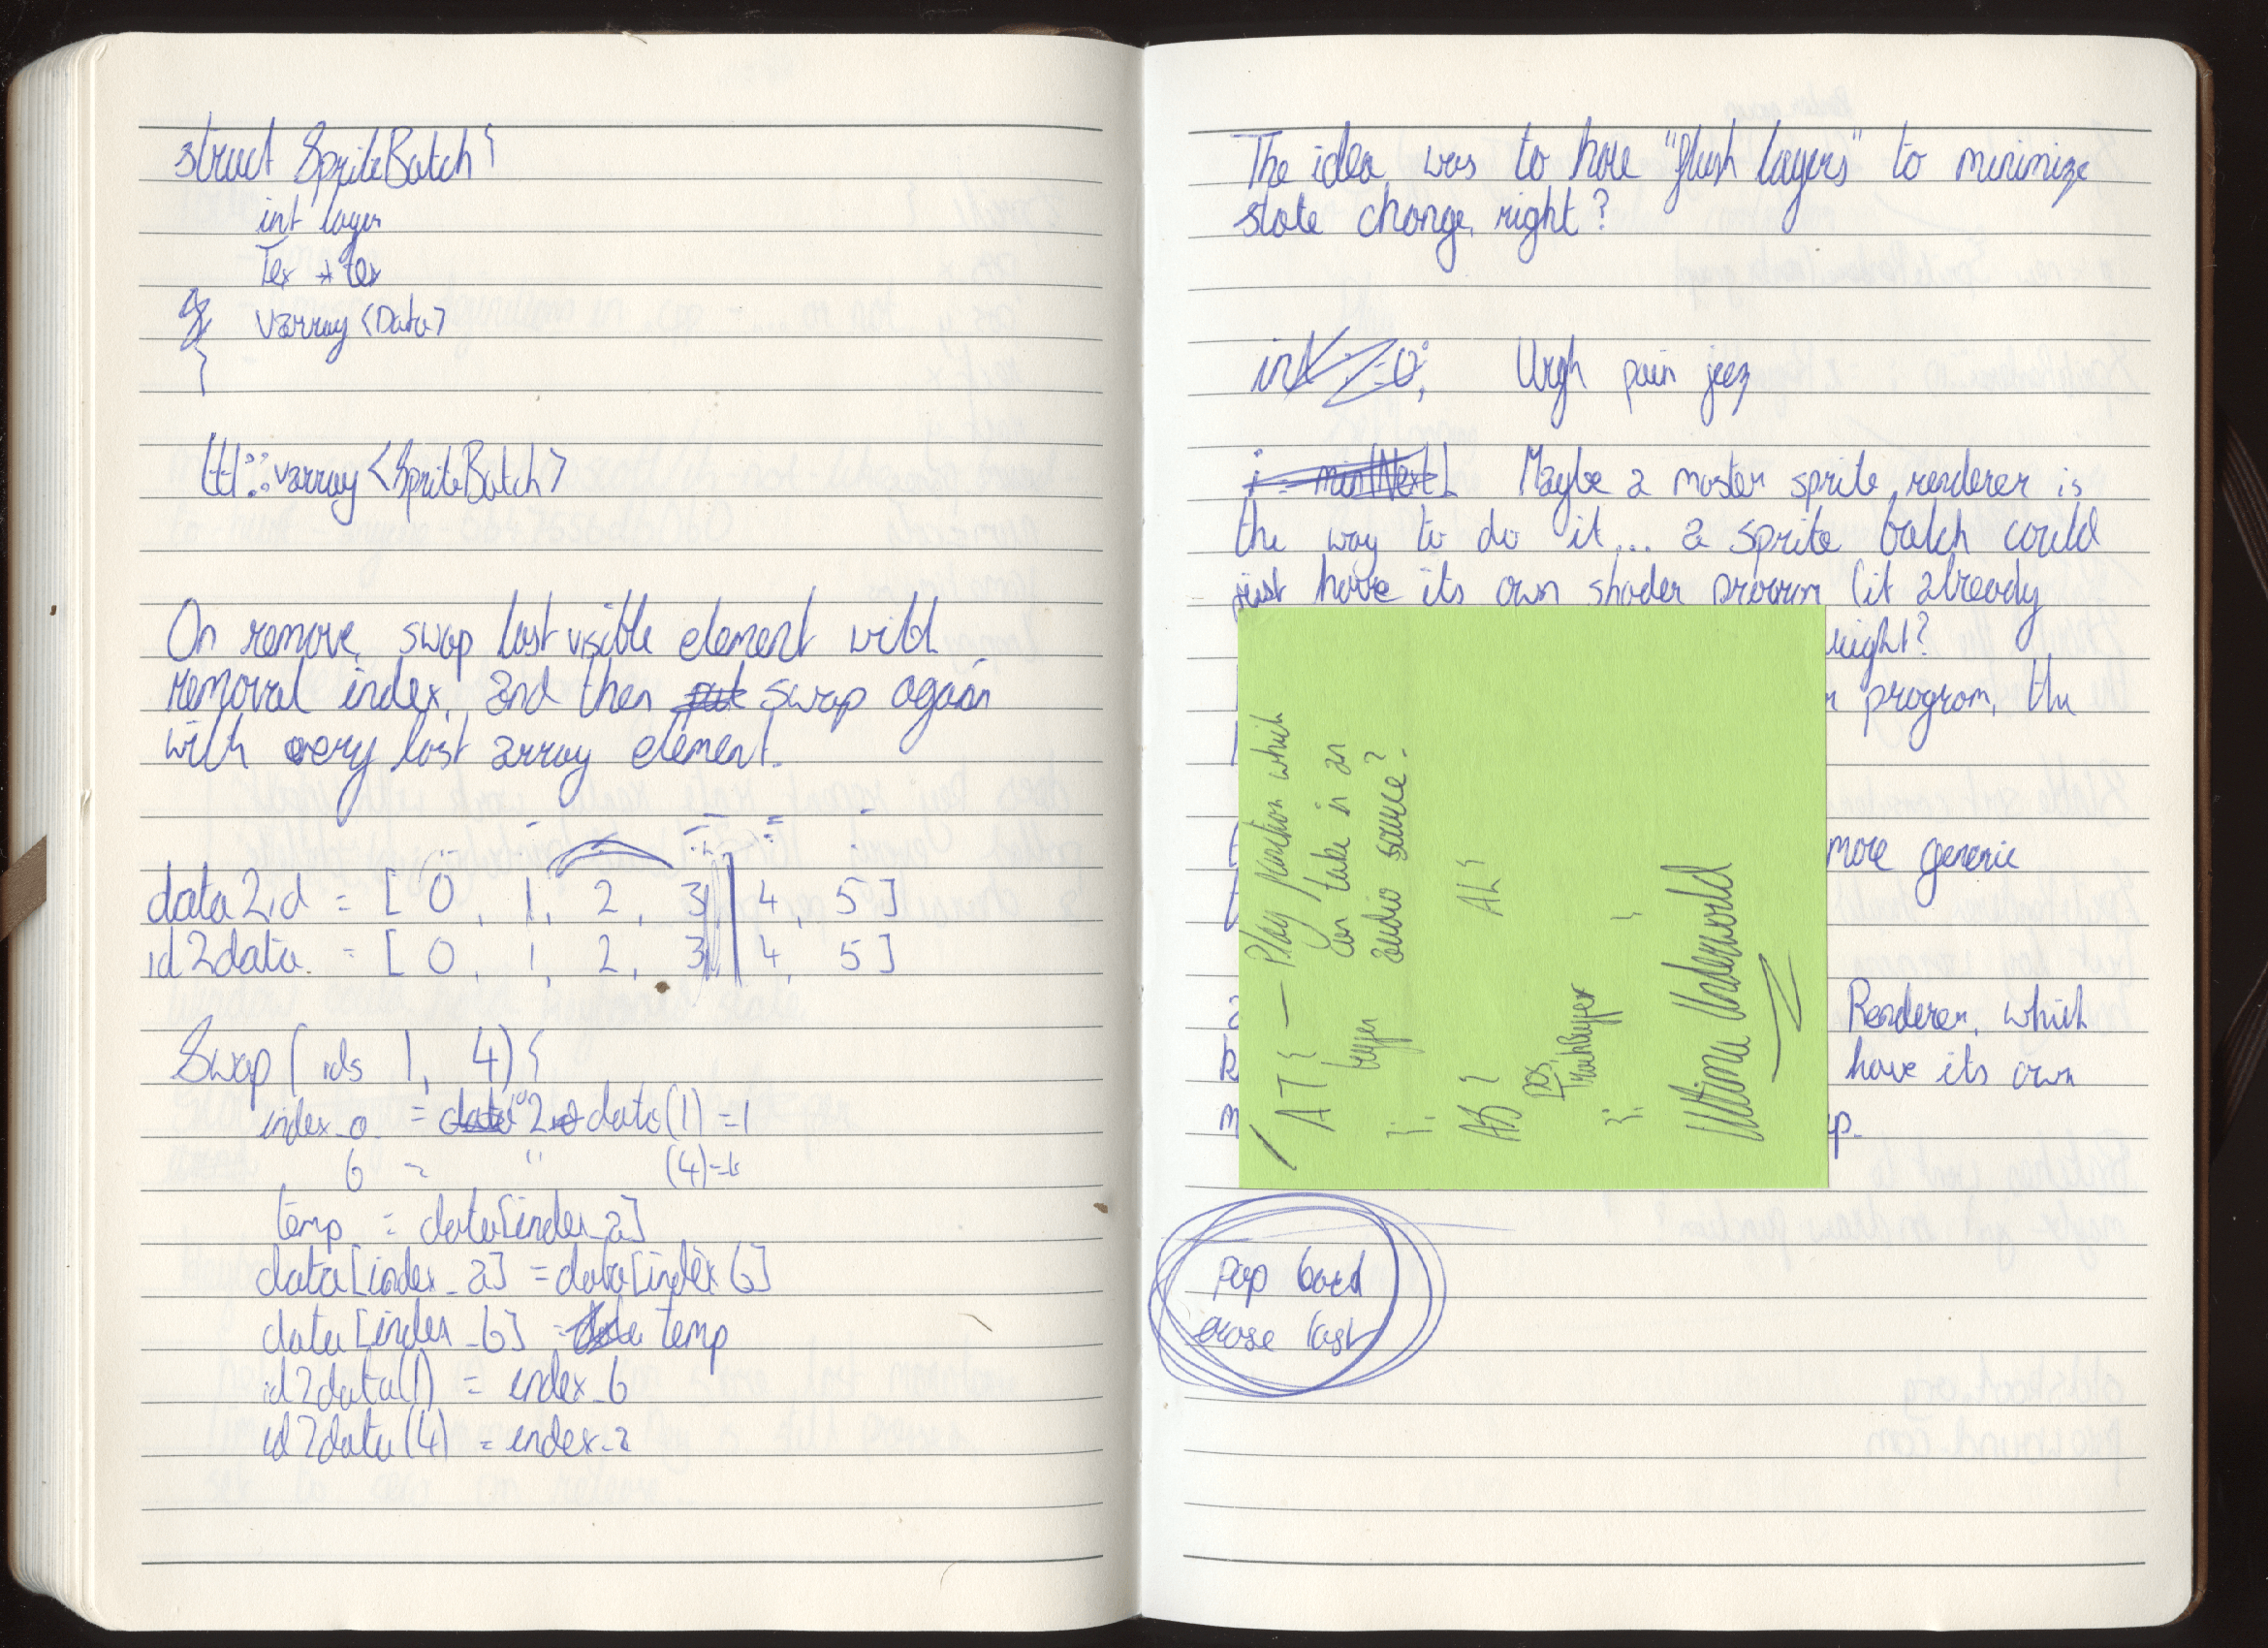 struct SpriteBatch {
int layer
Tex * tex
varray <Data>
}
ltl::varray <SpriteBatch>
On remove, swap last visible element with
removal index, and then swap again
with very last array element.
data2id = [ 0, 1, 2, 3 | 4, 5 ]
id2data = [ 0, 1, 2, 3 | 4, 5 ]
Swap( ids 1, 4) {
index_a = id2data(1) = 1
b = " (4) =
temp = data[index_a]
data[index_a] = data[index b]
data[index_b] = temp
id2data(1) = index_b
id2data(4) = index_a
The idea was to have "flush layers" to minimize
state change, right?
int i=0; Urgh pain jeez
i = min[Next] Maybe a master sprite renderer is
the way to do it... a sprite batch could
just have its own shader program (it already
right?
program, the
more generic
Renderer, which
have its own
Play function which
can take in an
audio source?
AT {
buffer
};
AS {
pos;
};
AL {
}
Ultima Underworld
pop back
erase last